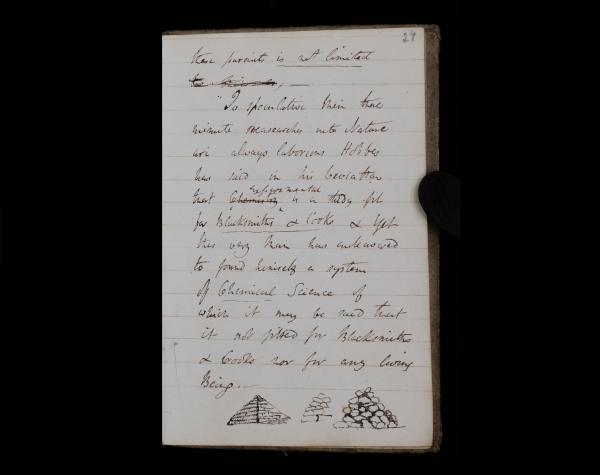 29
these pursuits is not limited
to
"To speculative men these
minute researches into Nature
are always laborious Hobbes
has said in his Leviathan
that Chemistry experimental is a study fit
for Blacksmiths & Cooks & yet
this very Man has endeavored
to found himself a system
of Chemical Science of
which it may be said that
it not fitted for Blacksmiths
& Cooks nor for any living
Being.—